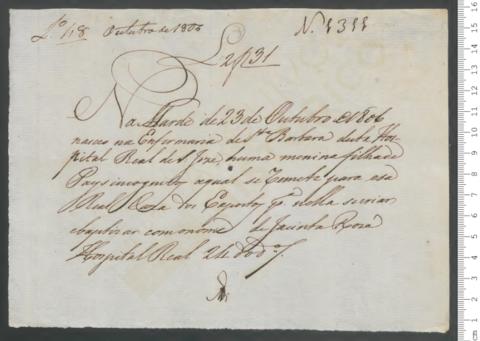 Lº 118 Outubro de 1806 N. 1311
L 2 f 31
Na Tarde de 23 de Outubro de 1806
nasceo na Enfermaria de Sta Barbara deste Hos-
pital Real de S. Joze, huma menina filha de
Pays incognitos aqual se Remete para essa
Real Caza dos Expostos pa nella se criar
ebaptizar com onome de Jacinta Roza
Hospital Real 24 do do